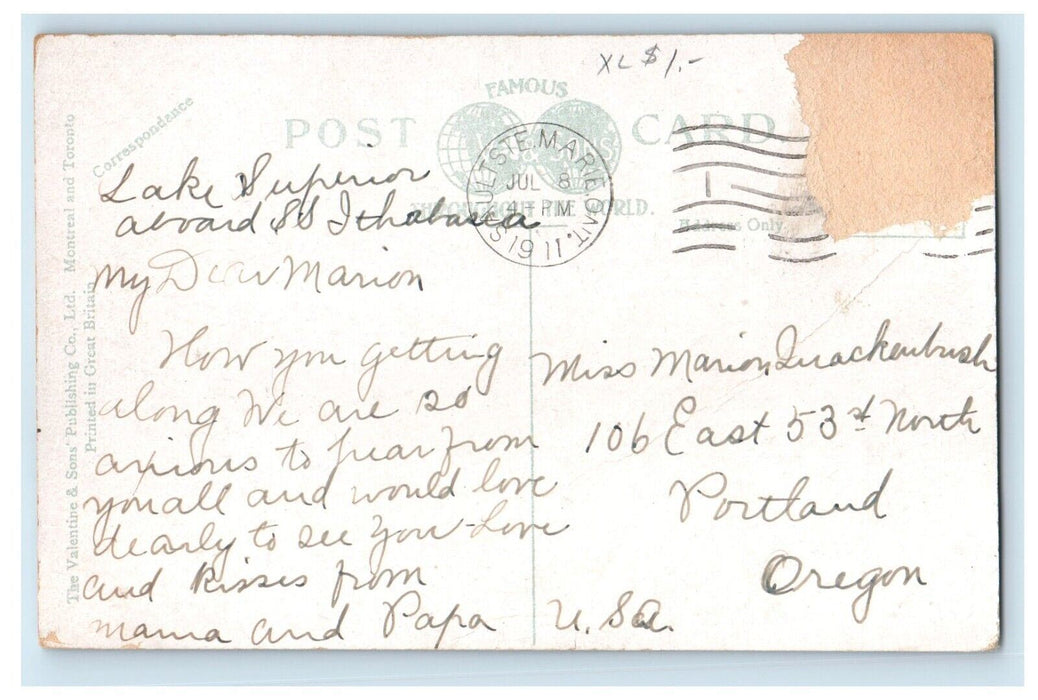 XL $1.-
FAMOUS
POST CARD
THROUGHOUT THE WORLD.
SAULT STE. MARIE, ONT.
JUL 8
PM
1911
1
Correspondence
Address Only.
The Valentine & Sons' Publishing Co., Ltd. Montreal and Toronto
Printed in Great Britain
Lake Superior
aboard SS Ithabasca
My Dear Marion
How you getting
along We are so
anxious to hear from
you all and would love
dearly to see you - Love
and kisses from
mama and Papa
Miss Marion Quackenbush
106 East 53rd North
Portland
Oregon
U.S.a.